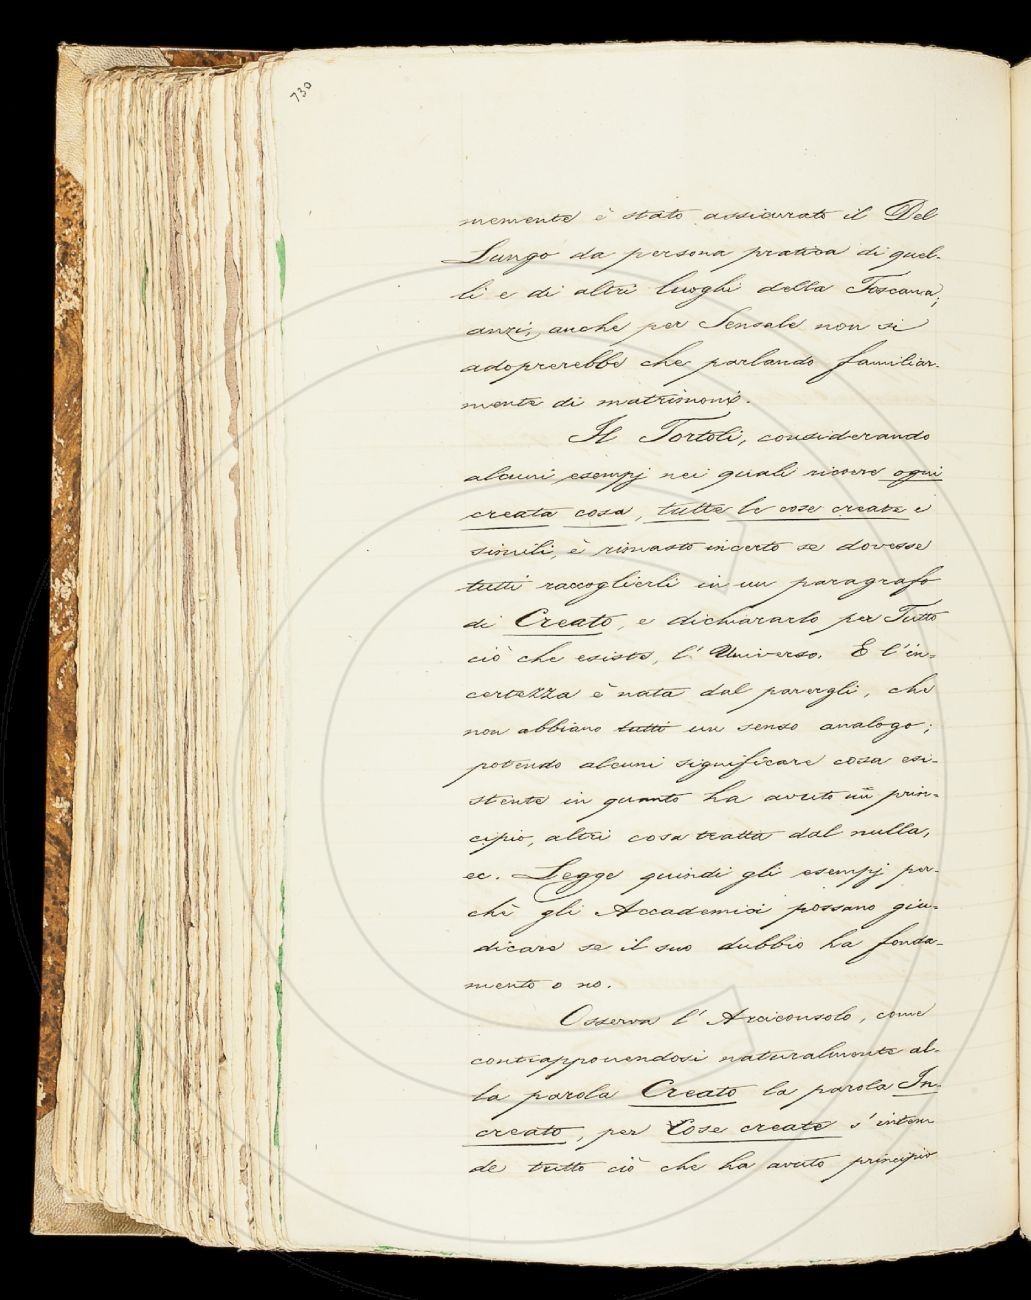 730
memente è stato assicurato il Del
Lungo da persona pratica di quel-
li e di altri luoghi della Toscana;
anzi, anche per Sensale non si
adoprerebbe che parlando familiar-
mente di matrimonj.
Il Tortoli, considerando
alcuni esempj nei quali ricorre ogni
creata cosa, tutte le cose create e
simili, è rimasto incerto se dovesse
tutti raccoglierli in un paragrafo
di Creato, e dichiararlo per Tutto
ciò che esiste, l'Universo. E l'in-
certezza è nata dal parergli, che
non abbiano tutti un senso analogo;
potendo alcuni significare cosa esi-
stente in quanto ha avuto un prin-
cipio, altri cosa tratta dal nulla,
ec. Legge quindi gli esempj per-
chè gli Accademici possano giu-
dicare se il suo dubbio ha fonda-
mento o no.
Osserva l'Arciconsolo, come
contrapponendosi naturalmente al-
la parola Creato la parola In-
creato, per Cose create s'inten
de tutto ciò che ha avuto principio